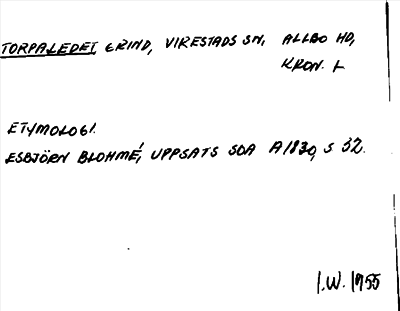 TORPALEDET, GRIND, VIRESTADS SN, ALLBO HD,
KRON. L
ETYMOLOGI.
ESBJÖRN BLOHMÉ, UPPSATS SOA A1830, S 32.
I.W. 1955